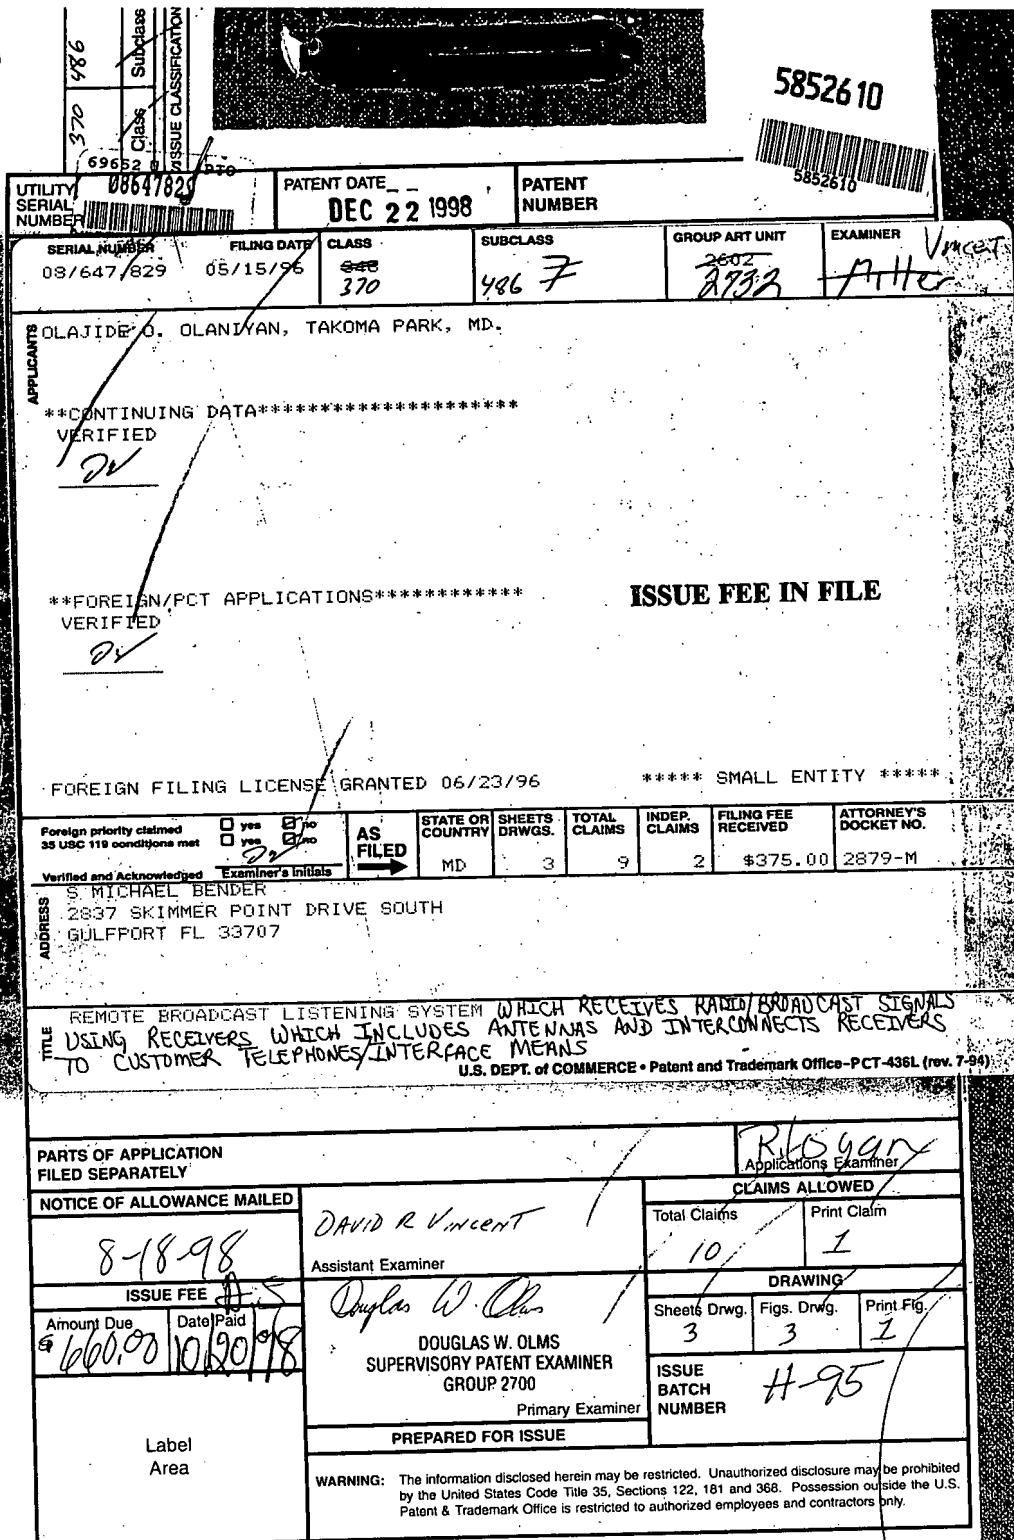 370 486
Class Subclass
ISSUE CLASSIFICATION
5852610
5852610
69652 U PTO
08647829
UTILITY SERIAL NUMBER
PATENT DATE
DEC 22 1998
PATENT NUMBER
SERIAL NUMBER FILING DATE CLASS SUBCLASS GROUP ART UNIT EXAMINER
Vincent
08/647,829 05/15/96 348 2602 Arther
370 486 F 2732
APPLICANTS
OLAJIDE O. OLANIYAN, TAKOMA PARK, MD.
**CONTINUING DATA*********************
VERIFIED
DV
**FOREIGN/PCT APPLICATIONS************
VERIFIED
DV
ISSUE FEE IN FILE
FOREIGN FILING LICENSE GRANTED 06/23/96 ***** SMALL ENTITY *****
Foreign priority claimed yes no
35 USC 119 conditions met yes no
Verified and Acknowledged Examiner's Initials
DV
AS FILED
STATE OR COUNTRY SHEETS DRWGS. TOTAL CLAIMS INDEP. CLAIMS FILING FEE RECEIVED ATTORNEY'S DOCKET NO.
MD 3 9 2 $375.00 2879-M
ADDRESS
S MICHAEL BENDER
2837 SKIMMER POINT DRIVE SOUTH
GULFPORT FL 33707
TITLE
REMOTE BROADCAST LISTENING SYSTEM WHICH RECEIVES RADIO/BROADCAST SIGNALS
USING RECEIVERS WHICH INCLUDES ANTENNAS AND INTERCONNECTS RECEIVERS
TO CUSTOMER TELEPHONES/INTERFACE MEANS
U.S. DEPT. of COMMERCE • Patent and Trademark Office–PCT-436L (rev. 7-94)
PARTS OF APPLICATION
FILED SEPARATELY
R. Logan
Applications Examiner
NOTICE OF ALLOWANCE MAILED
8-18-98
DAVID R VINCENT
Assistant Examiner
CLAIMS ALLOWED
Total Claims Print Claim
10 1
ISSUE FEE #5
Amount Due Date Paid
$660.00 10/20/98
Douglas W. Olms
DOUGLAS W. OLMS
SUPERVISORY PATENT EXAMINER
GROUP 2700
Primary Examiner
DRAWING
Sheets Drwg. Figs. Drwg. Print Fig.
3 3 1
ISSUE
BATCH
NUMBER
H-95
Label
Area
PREPARED FOR ISSUE
WARNING: The information disclosed herein may be restricted. Unauthorized disclosure may be prohibited
by the United States Code Title 35, Sections 122, 181 and 368. Possession outside the U.S.
Patent & Trademark Office is restricted to authorized employees and contractors only.